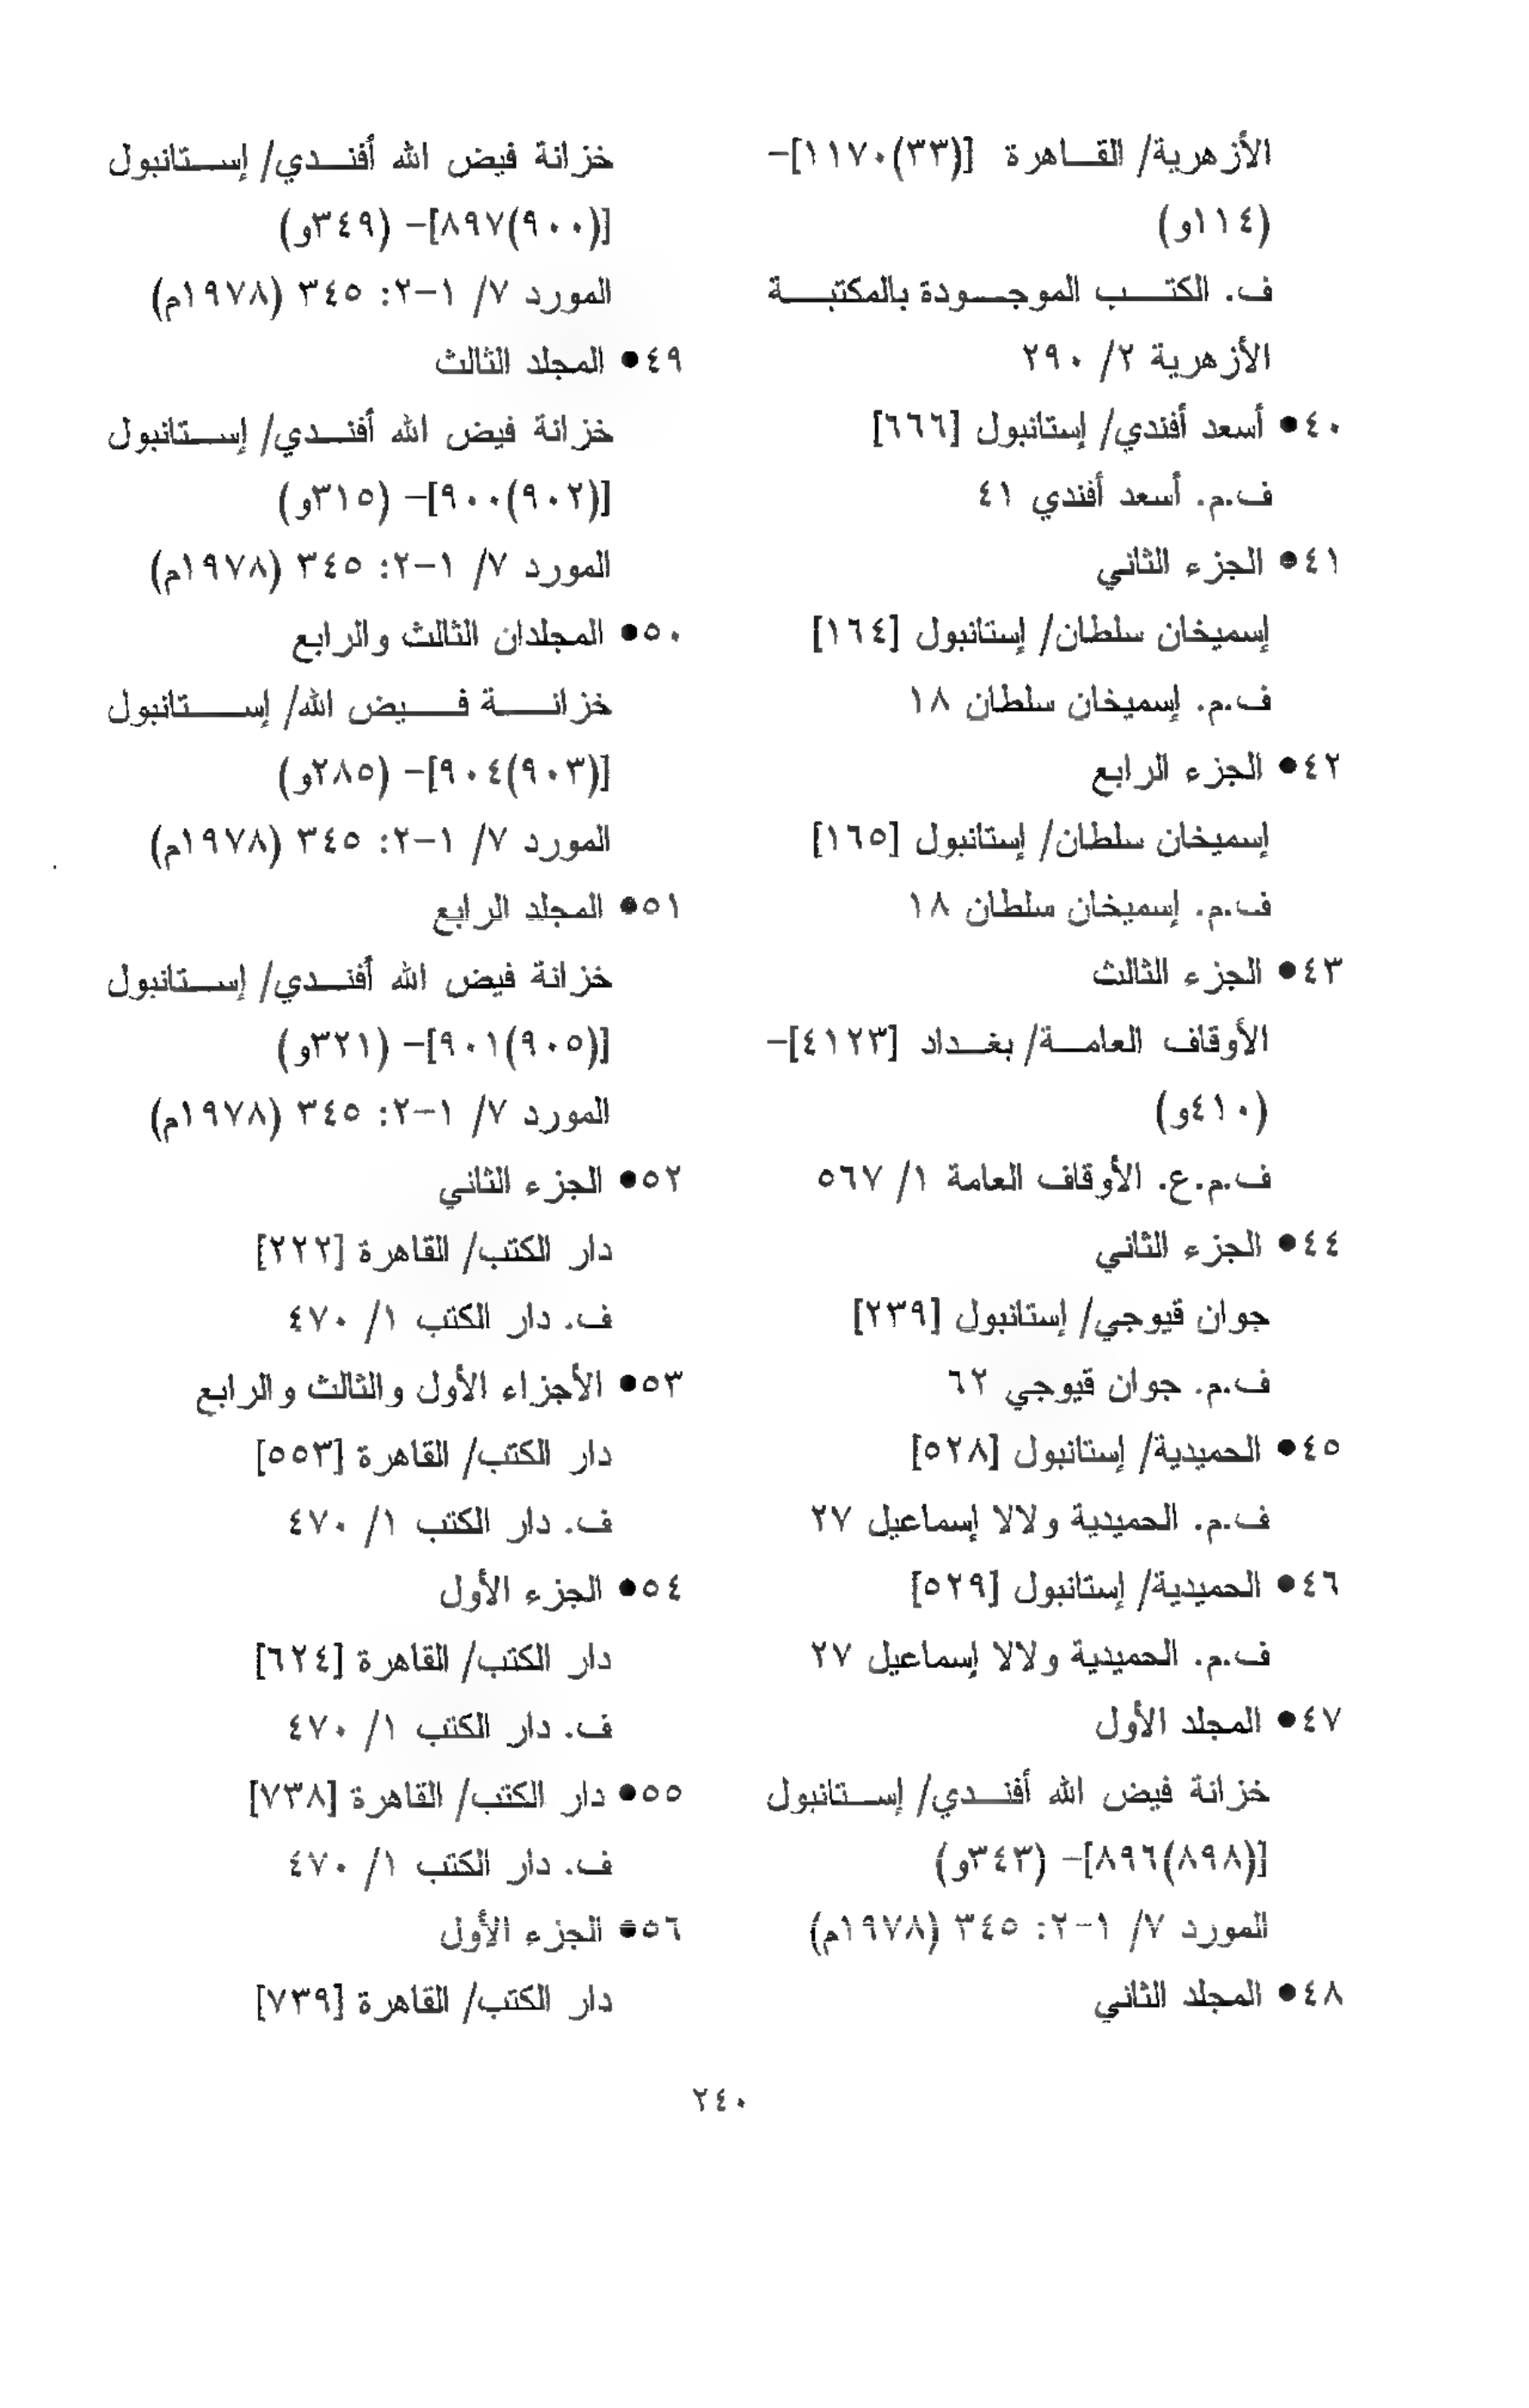 الأزهرية/ القاهرة [(٣٣)١١٧٠]-
(١١٤و)
ف. الكتب الموجودة بالمكتبة
الأزهرية ٢/ ٢٩٠
٤٠• أسعد أفندي/ إستانبول [٦٦٦]
ف.م. أسعد أفندي ٤١
٤١• الجزء الثاني
إسميخان سلطان/ إستانبول [١٦٤]
ف.م. إسميخان سلطان ١٨
٤٢• الجزء الرابع
إسميخان سلطان/ إستانبول [١٦٥]
ف.م. إسميخان سلطان ١٨
٤٣• الجزء الثالث
الأوقاف العامة/ بغداد [٤١٢٣]-
(٤١٠و)
ف.م.ع. الأوقاف العامة ١/ ٥٦٧
٤٤• الجزء الثاني
جوان قيوجي/ إستانبول [٢٣٩]
ف.م. جوان قيوجي ٦٢
٤٥• الحميدية/ إستانبول [٥٢٨]
ف.م. الحميدية ولالا إسماعيل ٢٧
٤٦• الحميدية/ إستانبول [٥٢٩]
ف.م. الحميدية ولالا إسماعيل ٢٧
٤٧• المجلد الأول
خزانة فيض الله أفندي/ إستانبول
[(٨٩٨)٨٩٦]- (٣٤٣و)
المورد ٧/ ١-٢: ٣٤٥ (١٩٧٨م)
٤٨• المجلد الثاني
خزانة فيض الله أفندي/ إستانبول
[(٩٠٠)٨٩٧]- (٣٤٩و)
المورد ٧/ ١-٢: ٣٤٥ (١٩٧٨م)
٤٩• المجلد الثالث
خزانة فيض الله أفندي/ إستانبول
[(٩٠٢)٩٠٠]- (٣١٥و)
المورد ٧/ ١-٢: ٣٤٥ (١٩٧٨م)
٥٠• المجلدان الثالث والرابع
خزانة فيض الله/ إستانبول
[(٩٠٣)٩٠٤]- (٢٨٥و)
المورد ٧/ ١-٢: ٣٤٥ (١٩٧٨م)
٥١• المجلد الرابع
خزانة فيض الله أفندي/ إستانبول
[(٩٠٥)٩٠١]- (٣٢١و)
المورد ٧/ ١-٢: ٣٤٥ (١٩٧٨م)
٥٢• الجزء الثاني
دار الكتب/ القاهرة [٢٢٢]
ف. دار الكتب ١/ ٤٧٠
٥٣• الأجزاء الأول والثالث والرابع
دار الكتب/ القاهرة [٥٥٣]
ف. دار الكتب ١/ ٤٧٠
٥٤• الجزء الأول
دار الكتب/ القاهرة [٦٢٤]
ف. دار الكتب ١/ ٤٧٠
٥٥• دار الكتب/ القاهرة [٧٣٨]
ف. دار الكتب ١/ ٤٧٠
٥٦• الجزء الأول
دار الكتب/ القاهرة [٧٣٩]
٢٤٠